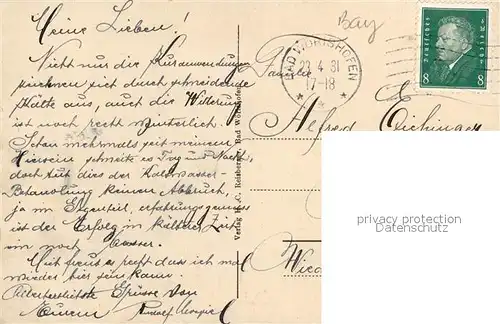 Meine Lieben!
Nicht nur die Kuranwendungen
zeichnen sich durch schneidende
Kälte aus, auch die Witterung
ist noch recht winterlich.
Schon mehrmals seit meinem
Hiersein schneite es Tag und Nacht,
doch tut dies der Kaltwasser-
Behandlung keinen Abbruch,
ja im Gegenteil, erfahrungsgemäß
ist der Erfolg in kälterer Zeit
um noch besser.
Mich freut es recht dass ich mal
wieder hier sein kann.
Allerherzlichste Grüsse von
Eurem Rudolf
Bay
BAD WÖRISHOFEN
23.4.31
17-18
Deutsches Reich
8 8
Familie
Alfred Eichinger
Verlag H. C. Reisberger, Bad Wörishofen
privacy protection
Datenschutz